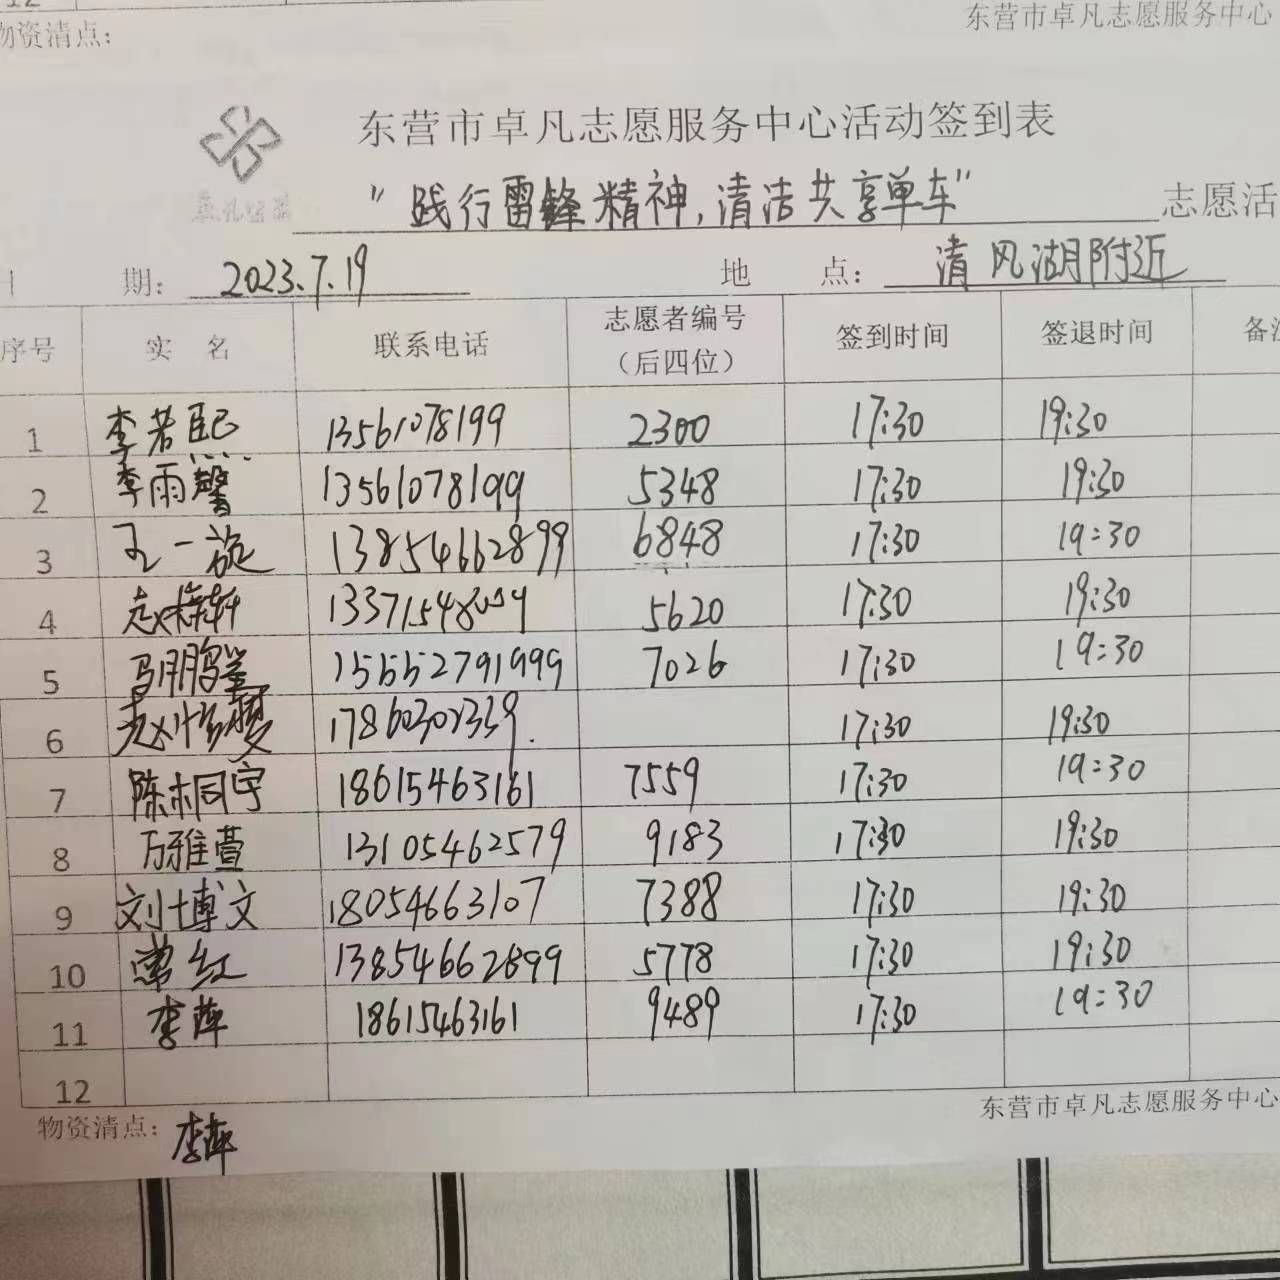 12
物资清点：
东营市卓凡志愿服务中心
东营市卓凡志愿服务中心活动签到表
"践行雷锋精神，清洁共享单车" 志愿活
期： 2023.7.19 地 点： 清风湖附近
序号 实 名 联系电话 志愿者编号（后四位） 签到时间 签退时间 备注
1 李若熙 13561078199 2300 17:30 19:30
2 李雨馨 13561078199 5348 17:30 19:30
3 王一旋 13854662899 6848 17:30 19:30
4 赵梓轩 5620 17:30 19:30
5 马鹏鉴 15552791999 7026 17:30 19:30
6 17:30 19:30
7 陈桐宇 18615463161 7559 17:30 19:30
8 万雅萱 13105462579 9183 17:30 19:30
9 刘博文 18054663107 7388 17:30 19:30
10 常红 13854662899 5778 17:30 19:30
11 李萍 18615463161 9489 17:30 19:30
12
物资清点： 李萍
东营市卓凡志愿服务中心